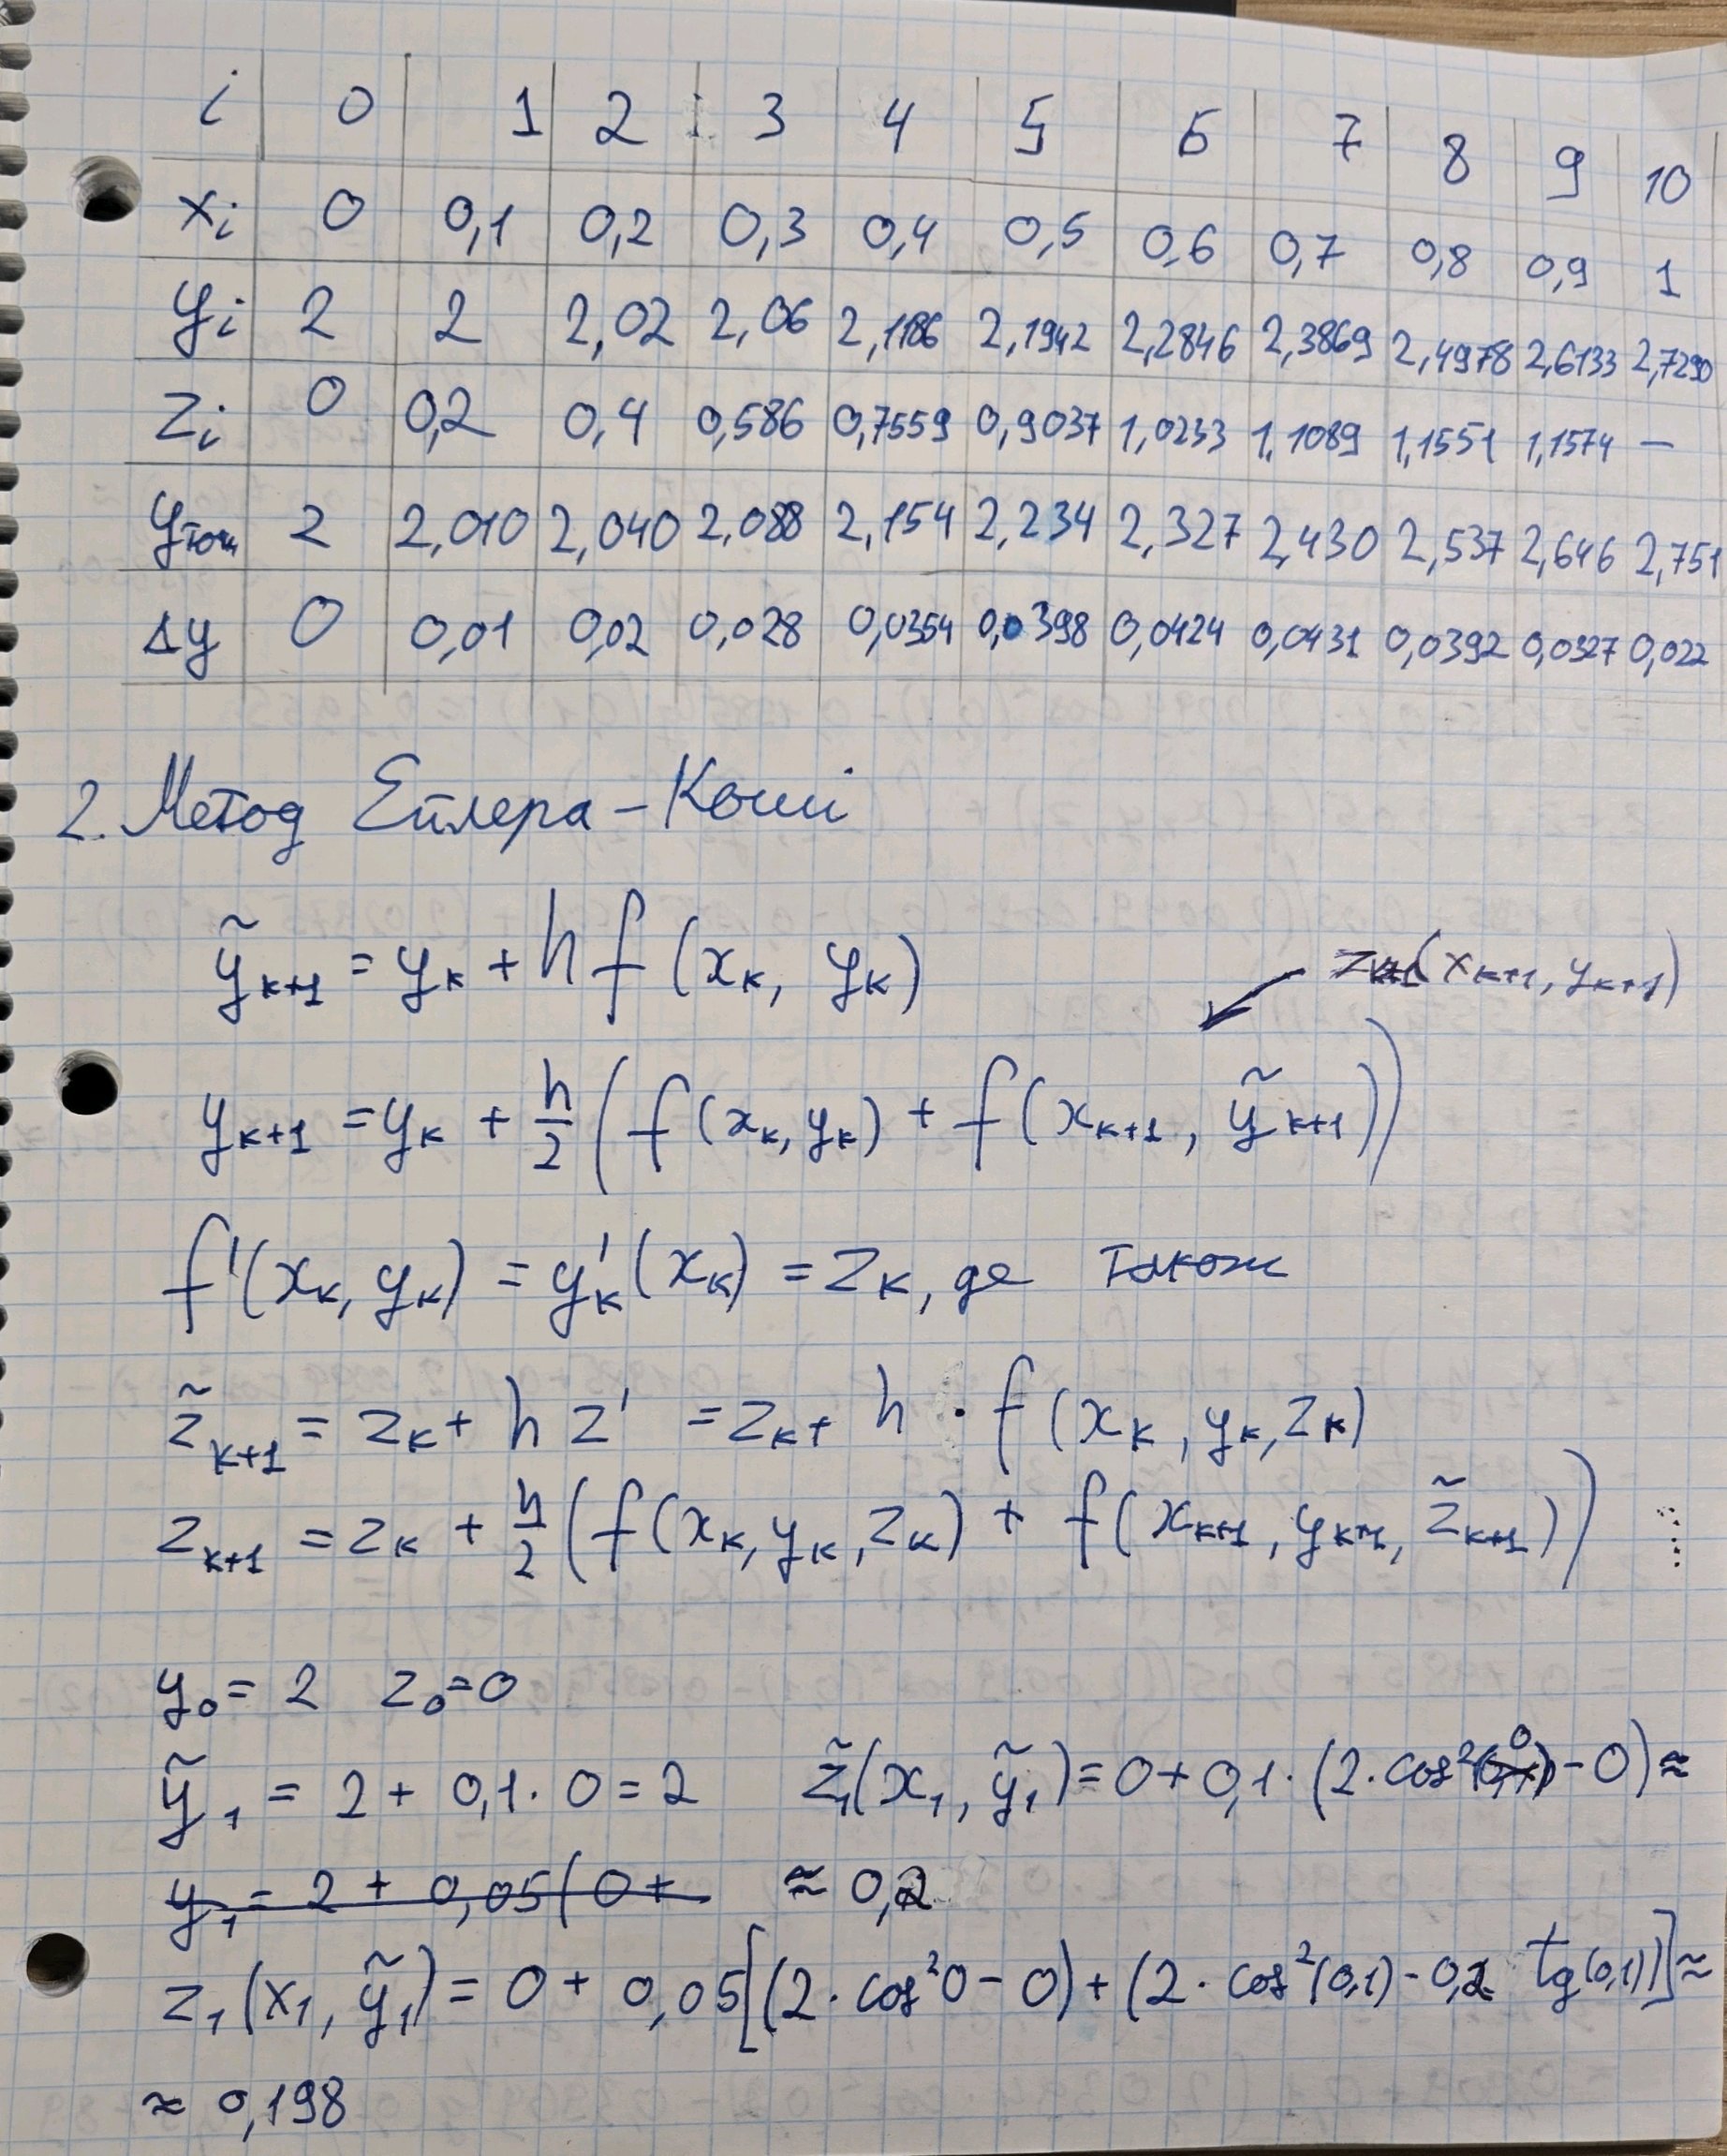 i 0 1 2 3 4 5 6 7 8 9 10
xᵢ 0 0,1 0,2 0,3 0,4 0,5 0,6 0,7 0,8 0,9 1
yᵢ 2 2 2,02 2,06 2,1186 2,1942 2,2846 2,3869 2,4978 2,6133 2,7290
zᵢ 0 0,2 0,4 0,586 0,7559 0,9037 1,0233 1,1089 1,1551 1,1574 —
yточн 2 2,010 2,040 2,088 2,154 2,234 2,327 2,430 2,537 2,646 2,751
Δy 0 0,01 0,02 0,028 0,0354 0,0398 0,0424 0,0431 0,0392 0,0327 0,022
2. Метод Ейлера – Коші
ỹₖ₊₁ = yₖ + h f (xₖ, yₖ)
(xₖ₊₁, yₖ₊₁)
yₖ₊₁ = yₖ + h/2 (f(xₖ, yₖ) + f(xₖ₊₁, ỹₖ₊₁))
f'(xₖ, yₖ) = y'ₖ(xₖ) = zₖ, де також
z̃ₖ₊₁ = zₖ + h z' = zₖ + h · f(xₖ, yₖ, zₖ)
zₖ₊₁ = zₖ + h/2 (f(xₖ, yₖ, zₖ) + f(xₖ₊₁, yₖ₊₁, z̃ₖ₊₁))
y₀ = 2 z₀ = 0
ỹ₁ = 2 + 0,1 · 0 = 2 z̃₁(x₁, ỹ₁) = 0 + 0,1 · (2 · cos² 0 - 0) ≈
y₁ = 2 + 0,05(0 + ≈ 0,2
z₁(x₁, ỹ₁) = 0 + 0,05[(2 · cos²0 - 0) + (2 · cos²(0,1) - 0,2 tg(0,1))] ≈
≈ 0,198